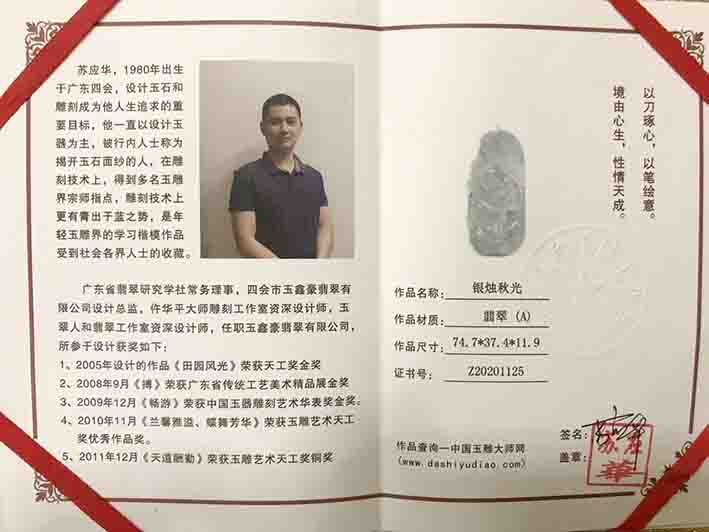 苏应华，1980年出生
于广东四会，设计玉石和
雕刻成为他人生追求的重
要目标，他一直以设计玉
器为主，被行内人士称为
揭开玉石面纱的人，在雕
刻技术上，得到多名玉雕
界宗师指点，雕刻技术上
更有青出于蓝之势，是年
轻玉雕界的学习楷模作品
受到社会各界人士的收藏。
广东省翡翠研究学社常务理事，四会市玉鑫豪翡翠有
限公司设计总监，仵华平大师雕刻工作室资深设计师，玉
翠人和翡翠工作室资深设计师，任职玉鑫豪翡翠有限公司，
所参于设计获奖如下：
1、2005年设计的作品《田园风光》荣获天工奖金奖
2、2008年9月《搏》荣获广东省传统工艺美术精品展金奖
3、2009年12月《畅游》荣获中国玉器雕刻艺术华表奖金奖。
4、2010年11月《兰馨雅溢、蝶舞芳华》荣获玉雕艺术天工
奖优秀作品奖。
5、2011年12月《天道酬勤》荣获玉雕艺术天工奖铜奖
以刀琢心，以笔绘意。
境由心生，性情天成。
作品名称：银烛秋光
作品材质：翡翠 (A)
作品尺寸：74.7*37.4*11.9
证书号：Z20201125
签名：
盖章：
苏应華
作品查询—中国玉雕大师网
(www.dashiyudiao.com)